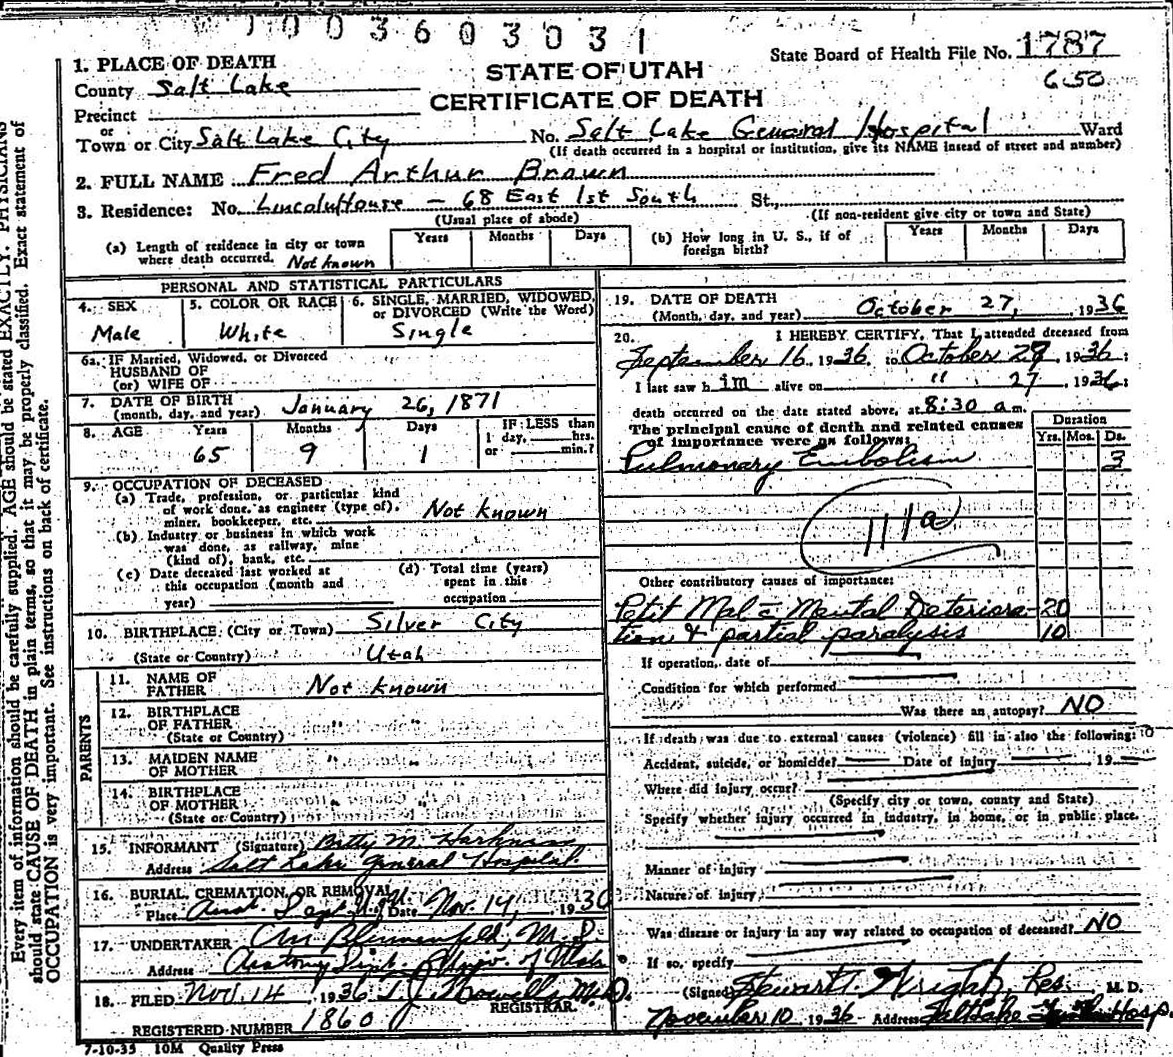 1003603031
State Board of Health File No. 1787
650
STATE OF UTAH
CERTIFICATE OF DEATH
1. PLACE OF DEATH
County Salt Lake
Precinct
or
Town or City Salt Lake City No. Salt Lake General Hospital Ward
(If death occurred in a hospital or institution, give its NAME insead of street and number)
2. FULL NAME Fred Arthur Brown
3. Residence: No. Lincoln House - 68 East 1st South St.,
(Usual place of abode) (If non-resident give city or town and State)
(a) Length of residence in city or town where death occurred. Not known Years Months Days
(b) How long in U. S., if of foreign birth? Years Months Days
PERSONAL AND STATISTICAL PARTICULARS
4. SEX Male
5. COLOR OR RACE White
6. SINGLE, MARRIED, WIDOWED, or DIVORCED (Write the Word) Single
6a. IF Married, Widowed, or Divorced
HUSBAND OF
(or) WIFE OF
7. DATE OF BIRTH
(month, day, and year) January 26, 1871
8. AGE Years Months Days IF LESS than
1 day, hrs.
or min.?
65 9 1
9. OCCUPATION OF DECEASED
(a) Trade, profession, or particular kind
of work done, as engineer (type of),
miner, bookkeeper, etc. Not known
(b) Industry or business in which work
was done, as railway, mine
(kind of), bank, etc.
(c) Date deceased last worked at
this occupation (month and
year)
(d) Total time (years)
spent in this
occupation
10. BIRTHPLACE (City or Town) Silver City
(State or Country) Utah
PARENTS
11. NAME OF
FATHER Not known
12. BIRTHPLACE
OF FATHER "
(State or Country)
13. MAIDEN NAME
OF MOTHER " "
14. BIRTHPLACE
OF MOTHER " "
(State or Country)
15. INFORMANT (Signature) Betty M. Harkness
Address Salt Lake General Hospital
16. BURIAL, CREMATION, OR REMOVAL
Place Anat. Dept. Date Nov. 14, 1930
17. UNDERTAKER Blumenfeld, M.S.
Address Anatomy Dept. Univ. of Utah
18. FILED Nov. 14 1936 T. J. Howells M.D.
REGISTRAR.
REGISTERED NUMBER 1860
7-10-35 10M Quality Press
19. DATE OF DEATH
(Month, day, and year) October 27, 1936
20. I HEREBY CERTIFY, That I attended deceased from
September 16, 1936 to October 27, 1936;
I last saw him alive on " 27, 1936;
death occurred on the date stated above, at 8:30 a.m.
The principal cause of death and related causes
of importance were as follows:
Duration
Yrs. Mos. Ds.
Pulmonary Embolism 3
111a
Other contributory causes of importance:
Petit Mal c Mental Deteriora- 20
tion & partial paralysis 10
If operation, date of
Condition for which performed
Was there an autopsy? NO
If death was due to external causes (violence) fill in also the following:
Accident, suicide, or homicide? Date of injury 19
Where did injury occur?
(Specify city or town, county and State)
Specify whether injury occurred in industry, in home, or in public place.
Manner of injury
Nature of injury
Was disease or injury in any way related to occupation of deceased? NO
If so, specify
(Signed) Stewart Wright, Res. M. D.
November 10 1936 Address Salt Lake Hosp.
Every item of information should be carefully supplied. AGE should be stated EXACTLY. PHYSICIANS
should state CAUSE OF DEATH in plain terms, so that it may be properly classified. Exact statement of
OCCUPATION is very important. See instructions on back of certificate.